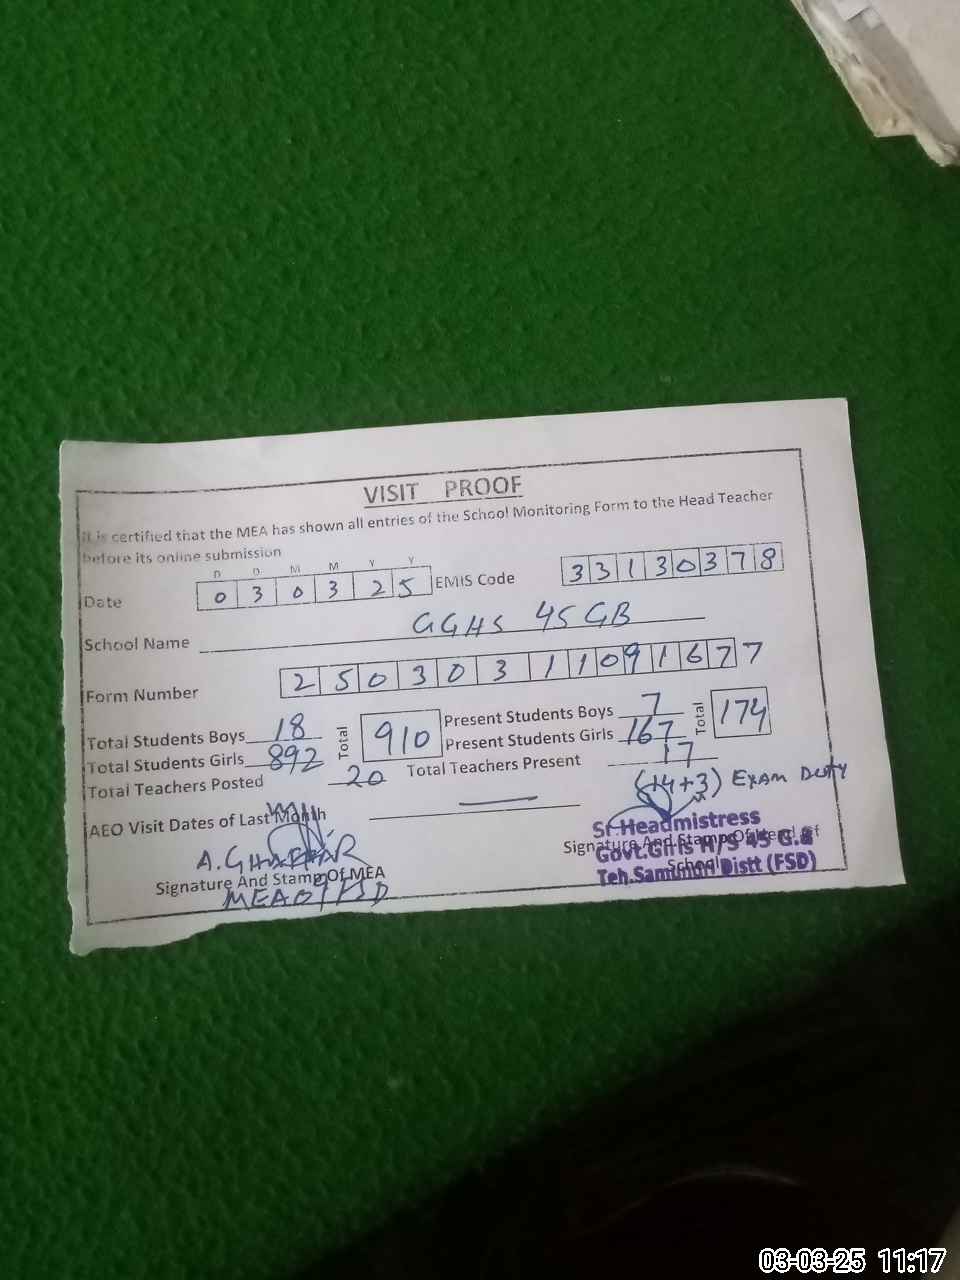 VISIT PROOF
It is certified that the MEA has shown all entries of the School Monitoring Form to the Head Teacher
before its online submission
D D M M Y Y
Date 0 3 0 3 2 5 EMIS Code 3 3 1 3 0 3 7 8
School Name GGHS 45 GB
Form Number 2 5 0 3 0 3 1 1 0 9 1 6 7 7
Total Students Boys 18 Total 910 Present Students Boys 7 Total 174
Total Students Girls 892 Present Students Girls 167
Total Teachers Posted 20 Total Teachers Present 17
(14+3) Exam Duty
AEO Visit Dates of Last Month —
A. GHAFFAR
Signature And Stamp Of MEA
Signature And Stamp Of Head of
School
Sr. Headmistress
Govt. Girls H/S 45 G.B
Teh. Samundri Distt (FSD)
03-03-25 11:17